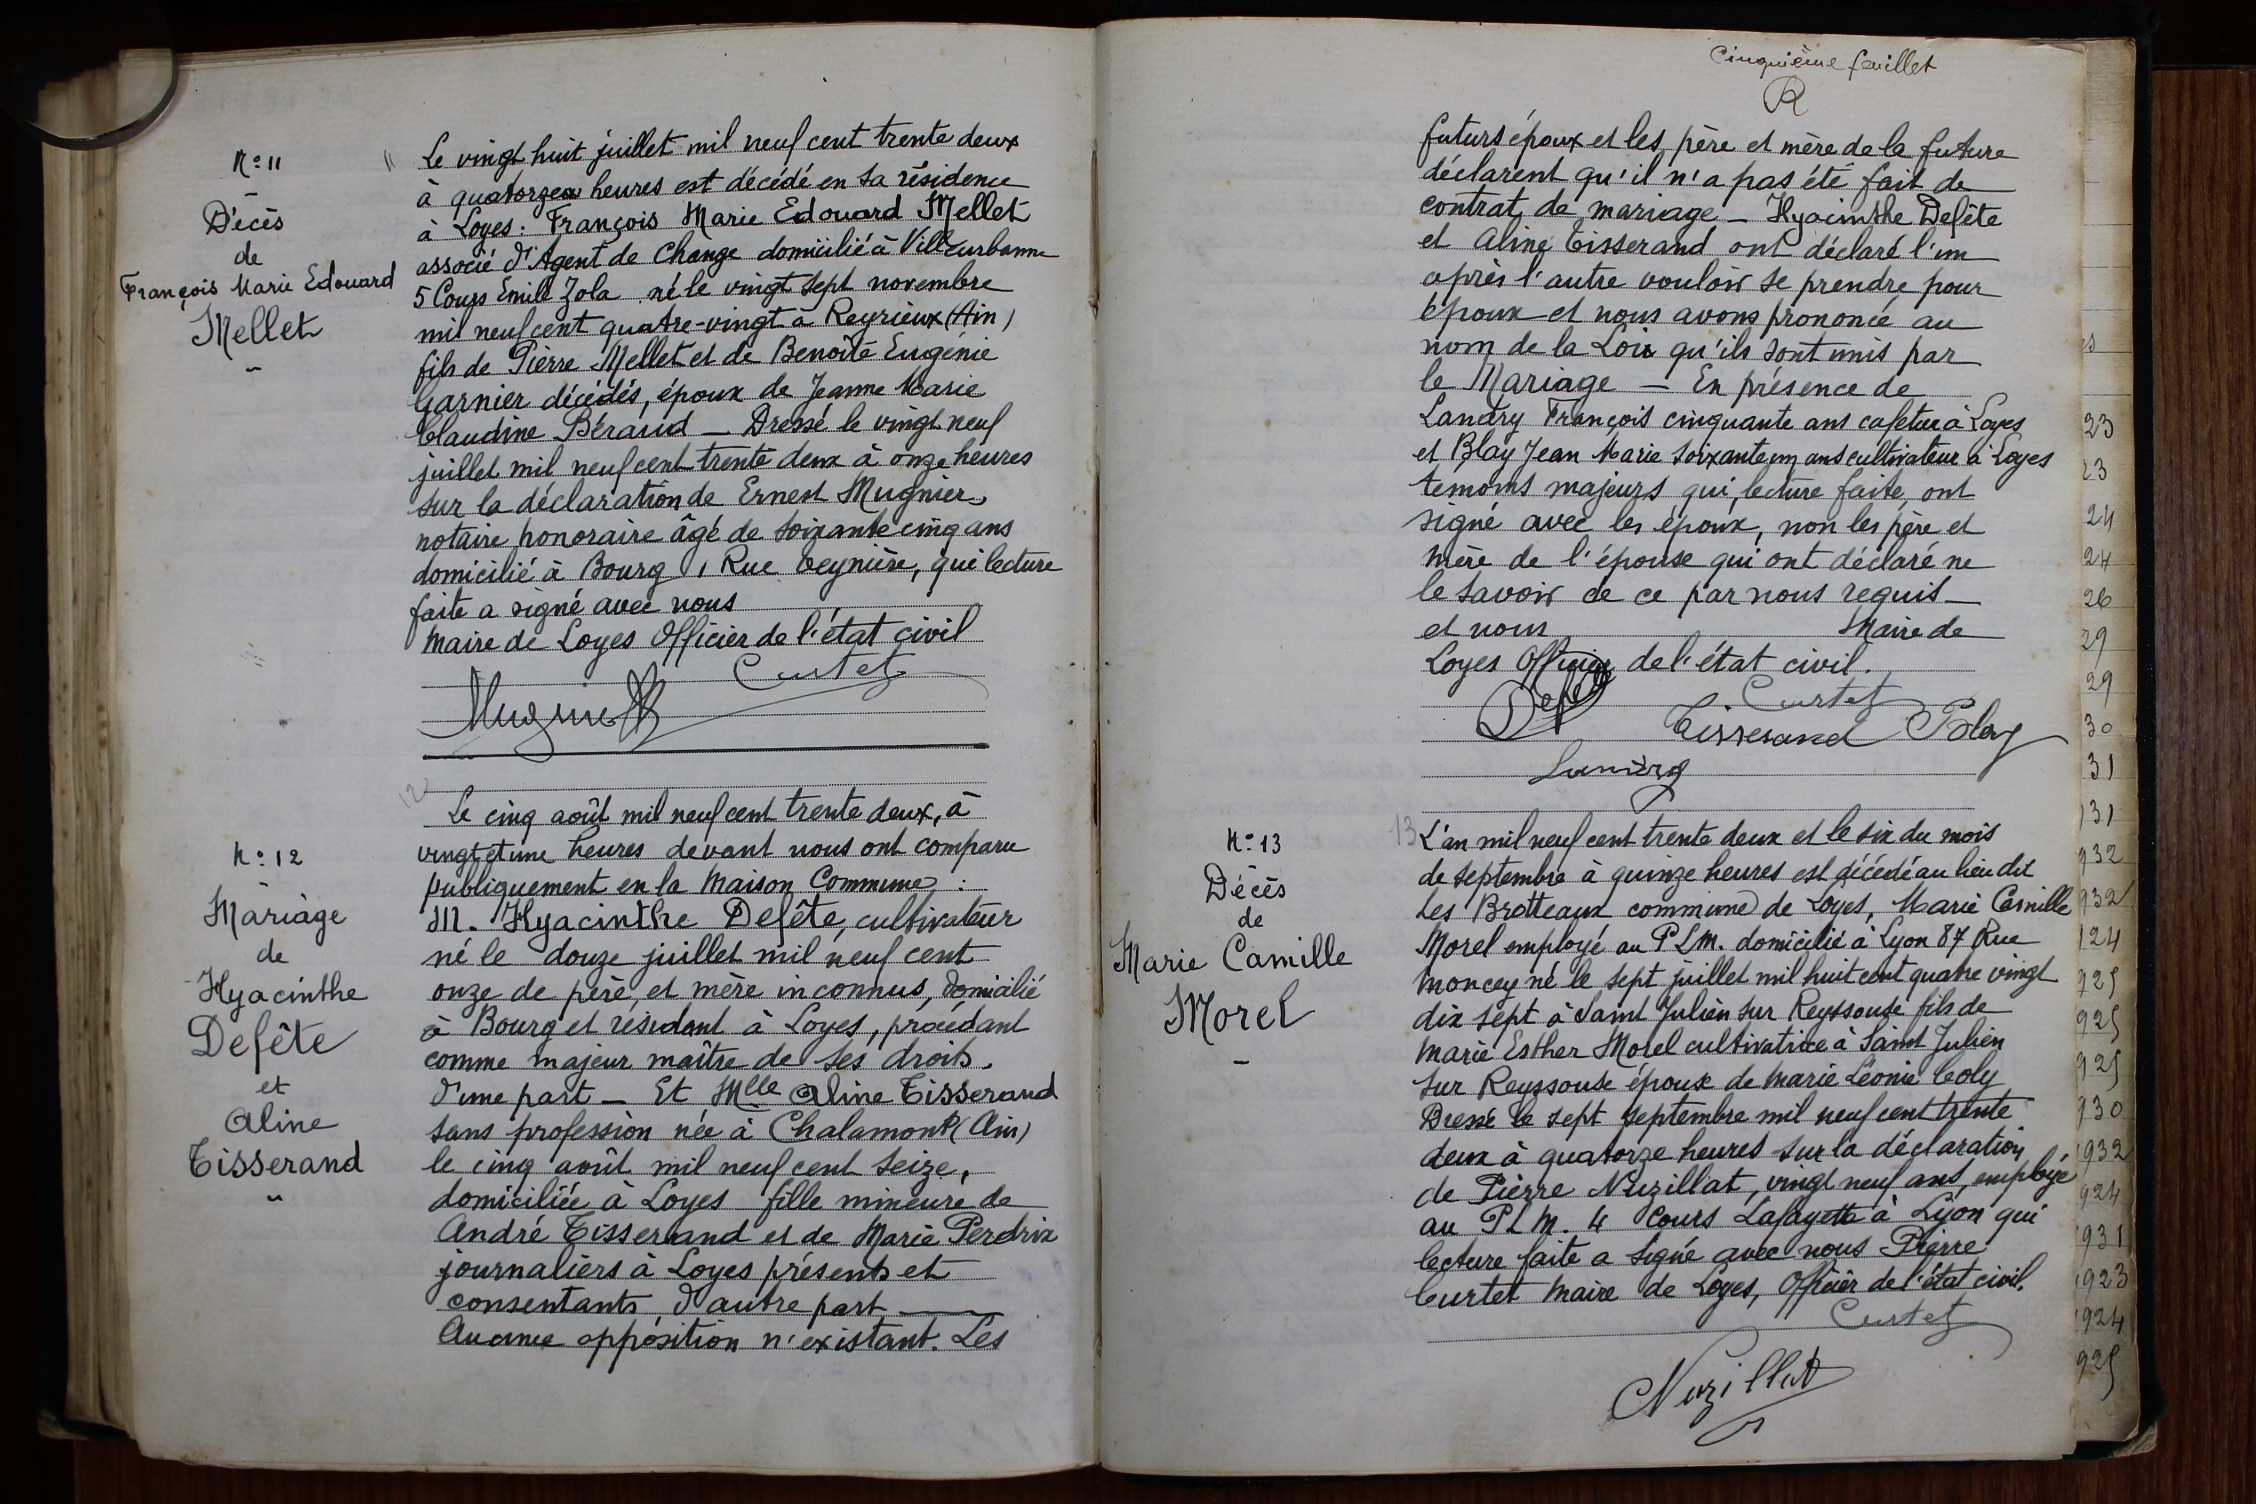 N° 11
Décès
de
François Marie Edouard
Mellet
11
Le vingt huit juillet mil neuf cent trente deux
à quatorze heures est décédé en sa résidence
à Loyes : François Marie Edouard Mellet
associé d'Agent de Change domicilié à Villeurbanne
5 Cours Emile Zola né le vingt sept novembre
mil neuf cent quatre-vingt à Reyrieux (Ain)
fils de Pierre Mellet et de Benoîte Eugénie
Garnier décédés, époux de Jeanne Marie
Claudine Béraud — Dressé le vingt neuf
juillet mil neuf cent trente deux à onze heures
sur la déclaration de Ernest Mugnier,
notaire honoraire âgé de soixante cinq ans
domicilié à Bourg, Rue Teynière, qui lecture
faite a signé avec nous
Maire de Loyes Officier de l'état civil
Curtet
Mugnier
N° 12
Mariage
de
Hyacinthe
Defête
et
Aline
Tisserand
12
Le cinq août mil neuf cent trente deux, à
vingt et une heures devant nous ont comparu
publiquement en la Maison Commune :
M. Hyacinthe Defête, cultivateur
né le douze juillet mil neuf cent
onze de père et mère inconnus, domicilié
à Bourg et résidant à Loyes, procédant
comme majeur maître de ses droits.
d'une part — Et Mlle Aline Tisserand
sans profession née à Chalamont (Ain)
le cinq août mil neuf cent seize,
domiciliée à Loyes fille mineure de
André Tisserand et de Marie Perdrix
journaliers à Loyes présents et
consentants, d'autre part —
Aucune opposition n'existant. Les
Cinquième feuillet
futurs époux et les père et mère de la future
déclarent qu'il n'a pas été fait de
contrat de mariage — Hyacinthe Defête
et Aline Tisserand ont déclaré l'un
après l'autre vouloir se prendre pour
époux et nous avons prononcé au
nom de la Loi qu'ils sont unis par
le Mariage — En présence de
Landry François cinquante ans cafetier à Loyes
et Blay Jean Marie soixante un ans cultivateur à Loyes
temoins majeurs qui, lecture faite, ont
signé avec les époux, non les père et
mère de l'épouse qui ont déclaré ne
le savoir de ce par nous requis —
et nous Maire de
Loyes Officier de l'état civil.
Defête
Curtet
Tisserand Blay
Landry
N° 13
Décès
de
Marie Camille
Morel
13
L'an mil neuf cent trente deux et le six du mois
de septembre à quinze heures est décédé au lieu dit
Les Brotteaux commune de Loyes, Marie Camille
Morel employé au P L M. domicilié à Lyon 87 Rue
Moncey né le sept juillet mil huit cent quatre vingt
dix sept à Saint Julien sur Reyssouse fils de
Marie Esther Morel cultivatrice à Saint Julien
sur Reyssouse époux de Marie Léonie Coly
Dressé le sept septembre mil neuf cent trente
deux à quatorze heures sur la déclaration
de Pierre Nuzillat, vingt neuf ans, employé
au P L M. 4 Cours Lafayette à Lyon qui
lecture faite a signé avec nous Pierre
Curtet Maire de Loyes, Officier de l'état civil.
Curtet
Nuzillat
23
23
24
24
26
29
29
30
31
131
932
932
124
925
925
925
930
1932
924
931
1923
1924
925